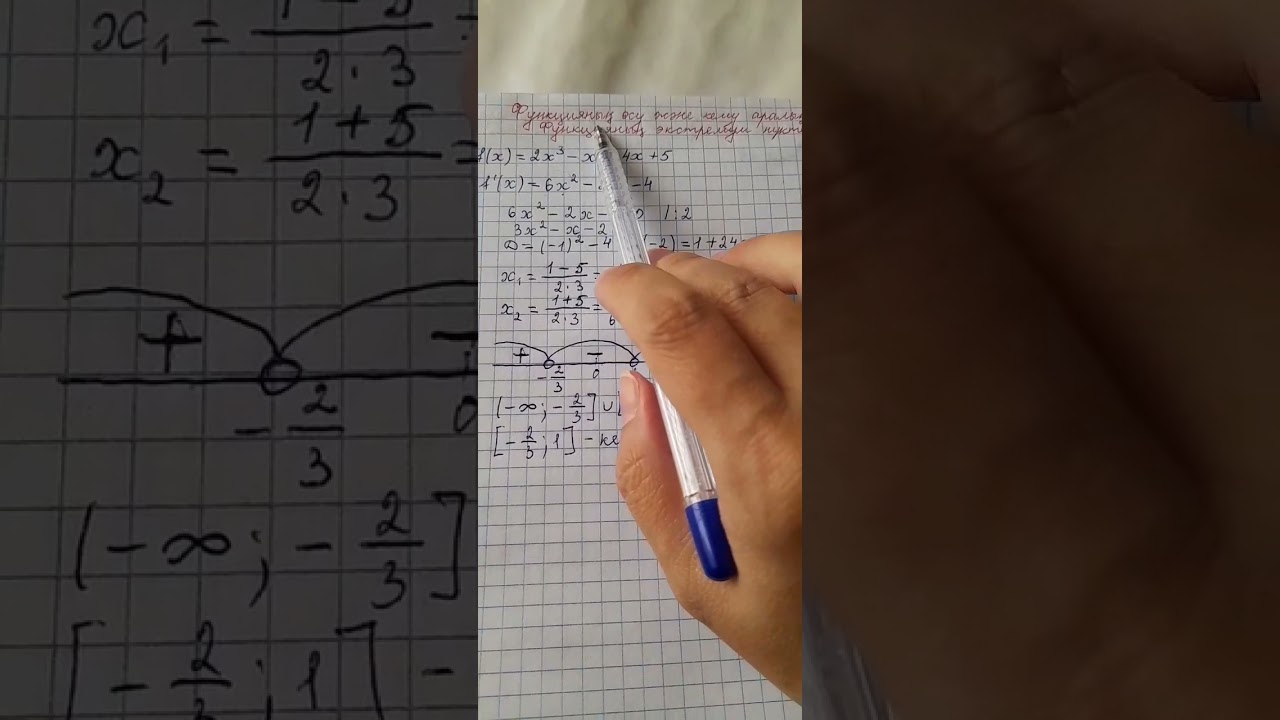 Функцияның өсу және кему аралы
Функцияның экстремум нүкте
f(x) = 2x³ - x 4x + 5
f'(x) = 6x² - - 4
6x² - 2x - 0 / : 2
3x² - x - 2
D = (-1)² - 4 (-2) = 1 + 24
x₁ = (1 - 5)/(2 · 3) =
x₂ = (1 + 5)/(2 · 3) = 6
+ - 
-2/3 0
(-∞; -2/3] ∪ [
[-2/3; 1] - ке